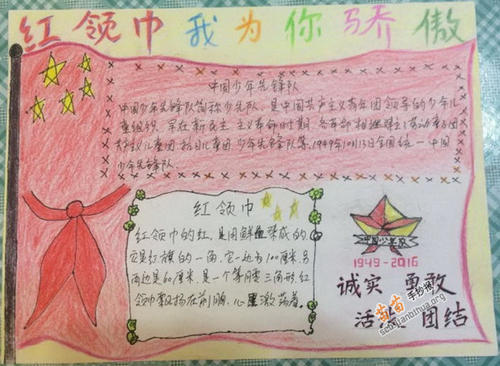 红领巾我为你骄傲
中国少年先锋队
中国少年先锋队简称少先队,是中国共产主义青年团领导的少年儿
童组织,早在新民主主义革命时期,各革命根据地建立了劳动童子团
共产主义儿童团、抗日儿童团、少年先锋队等,1949年10月13日全国统一中国
少年先锋队.
红领巾
红领巾的红,是用鲜血染成的
它是红旗的一角,它一边长100厘米,另
两边是60厘米,是一个等腰三角形.红
领巾飘扬在前胸,心里激荡着.
中国少先队
1949-2016
诚实 勇敢
活泼 团结
苗苗手抄报